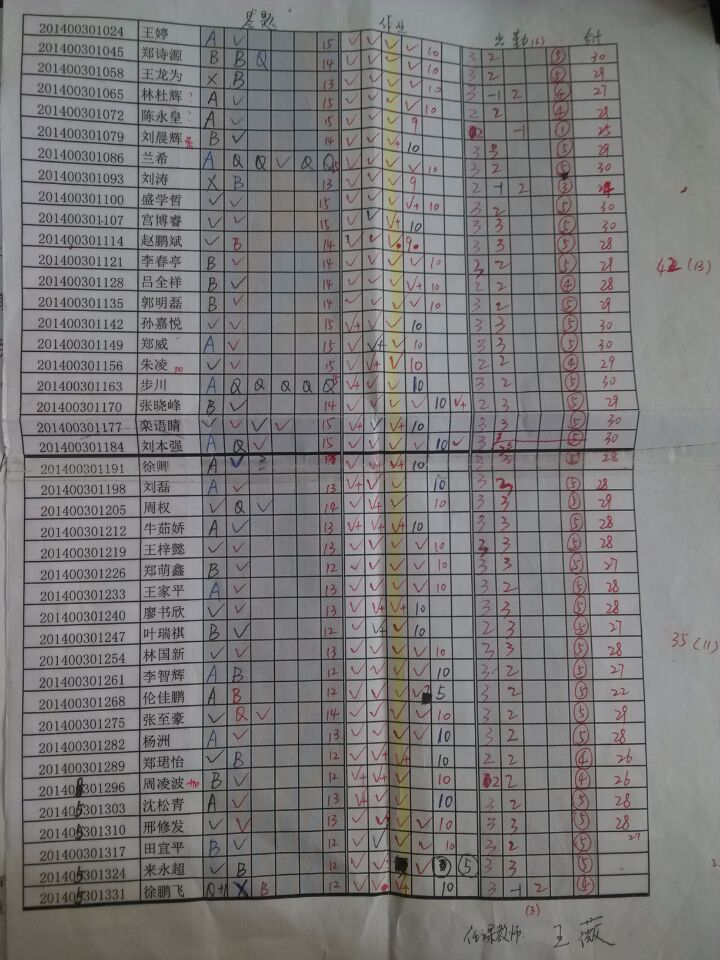 答题 作业 出勤(6) 合计
201400301024 王婷 A ✓ 15 ✓ ✓ ✓ ✓ 10 3 2 ⑤ 30
201400301045 郑诗源 B B Q 14 ✓ ✓ ✓ ✓ 10 3 2 ⑤ 29
201400301058 王龙为 X B 13 ✓ ✓ ✓ ✓ 10 3 -1 2 ④ 27
201400301065 林杜辉 A ✓ 15 ✓ ✓ ✓ ✓ 10 2 2 ④ 28
201400301072 陈永皇 A ✓ 15 ✓ ✓ ✓ 9 2 -1 ① 25
201400301079 刘晨辉 B ✓ 14 ✓ ✓ ✓+ 10 3 3 ⑤ 29
201400301086 兰希 A Q Q ✓ Q Q 15 ✓ ✓ ✓ ✓ 10 3 2 ⑤ 30
201400301093 刘涛 X B 13 ✓ ✓ ✓ 9 2 -1 2 ③ 24
201400301100 盛学哲 ✓ ✓ 15 ✓ ✓ ✓ ✓+ 10 3 2 ⑤ 30
201400301107 宫博睿 ✓ ✓ 15 ✓ ✓ ✓+ 10 3 3 ⑤ 30
201400301114 赵鹏斌 ✓ B 14 ✓ ✓ ✓ 9 3 3 ⑤ 28
201400301121 李春亭 B ✓ 14 ✓ ✓ ✓ ✓ 10 3 2 ⑤ 29
201400301128 吕全祥 B ✓ 14 ✓ ✓ ✓ ✓+ 10 2 2 ④ 28
201400301135 郭明磊 B ✓ 14 ✓ ✓ ✓ ✓ 10 3 2 ⑤ 29
201400301142 孙嘉悦 ✓ ✓ 15 ✓+ ✓ ✓ 10 3 3 ⑤ 30
201400301149 郑威 A ✓ 15 ✓ ✓+ ✓ 10 3 3 ⑤ 30
201400301156 朱凌 ✓ ✓ 15 ✓ ✓+ ✓ 10 2 2 ④ 29
201400301163 步川 A Q Q Q Q Q 15 ✓+ ✓ ✓ 10 3 2 ⑤ 30
201400301170 张晓峰 B ✓ 14 ✓ ✓ ✓ ✓ 10 ✓+ 2 3 ⑤ 29
201400301177 栾语晴 ✓ ✓ ✓ ✓ 15 ✓+ ✓ ✓+ 10 3 3 ⑤ 30
201400301184 刘本强 A Q ✓ 15 ✓ ✓ ✓ ✓ 10 ✓ 3 3 ⑤ 30
201400301191 徐卿 A ✓ ✓ ✓+ ✓+ 10 3 3 ⑤ 28
201400301198 刘磊 A ✓ 13 ✓+ ✓ ✓ 10 3 2 ⑤ 28
201400301205 周权 ✓ Q ✓ 14 ✓ ✓+ ✓ 10 3 3 ⑤ 29
201400301212 牛茹娇 A ✓ 13 ✓ ✓+ ✓+ 10 3 3 ⑤ 28
201400301219 王梓懿 ✓ ✓ 13 ✓ ✓ ✓ ✓ 10 3 3 ⑤ 28
201400301226 郑萌鑫 B ✓ 12 ✓ ✓ ✓ ✓ 10 3 3 ⑤ 27
201400301233 王家平 A ✓ 13 ✓ ✓ ✓ ✓ 10 3 2 ⑤ 28
201400301240 廖书欣 ✓ ✓ 13 ✓ ✓+ ✓+ 10 3 3 ⑤ 28
201400301247 叶瑞祺 B ✓ 12 ✓ ✓+ ✓ 10 2 3 ⑤ 27
201400301254 林国新 ✓ ✓ 13 ✓ ✓ ✓ ✓ 10 3 3 ⑤ 28
201400301261 李智辉 A B 12 ✓ ✓ ✓ ✓ 10 3 2 ⑤ 27
201400301268 伦佳鹏 A B 12 ✓ ✓ ✓ ✓ 5 3 2 ⑤ 22
201400301275 张至豪 ✓ Q ✓ 14 ✓ ✓ ✓ ✓ 10 3 2 ⑤ 29
201400301282 杨洲 A ✓ 13 ✓ ✓ ✓ ✓ 10 3 2 ⑤ 28
201400301289 郑珺怡 ✓ B 12 ✓ ✓+ ✓+ 10 2 2 ④ 26
201400301296 周凌波 B ✓ 12 ✓+ ✓+ ✓ 10 2 2 ④ 26
201405301303 沈松青 A ✓ 13 ✓+ ✓ ✓ 10 3 2 ⑤ 28
201405301310 邢修发 ✓ ✓ 13 ✓ ✓ ✓ ✓ 10 3 3 ⑤ 28
201405301317 田宜平 B ✓ 12 ✓ ✓ ✓ ✓ 10 3 2 ⑤ 27
201405301324 来永超 ✓ B 12 ✓ ✓ ✓ ⑤ 3 3 ⑤
201405301331 徐鹏飞 Q+1 X B 12 ✓ ✓ ✓+ 10 3 -1 2 ④
42 (13)
35 (11)
(3)
任课教师: 王薇